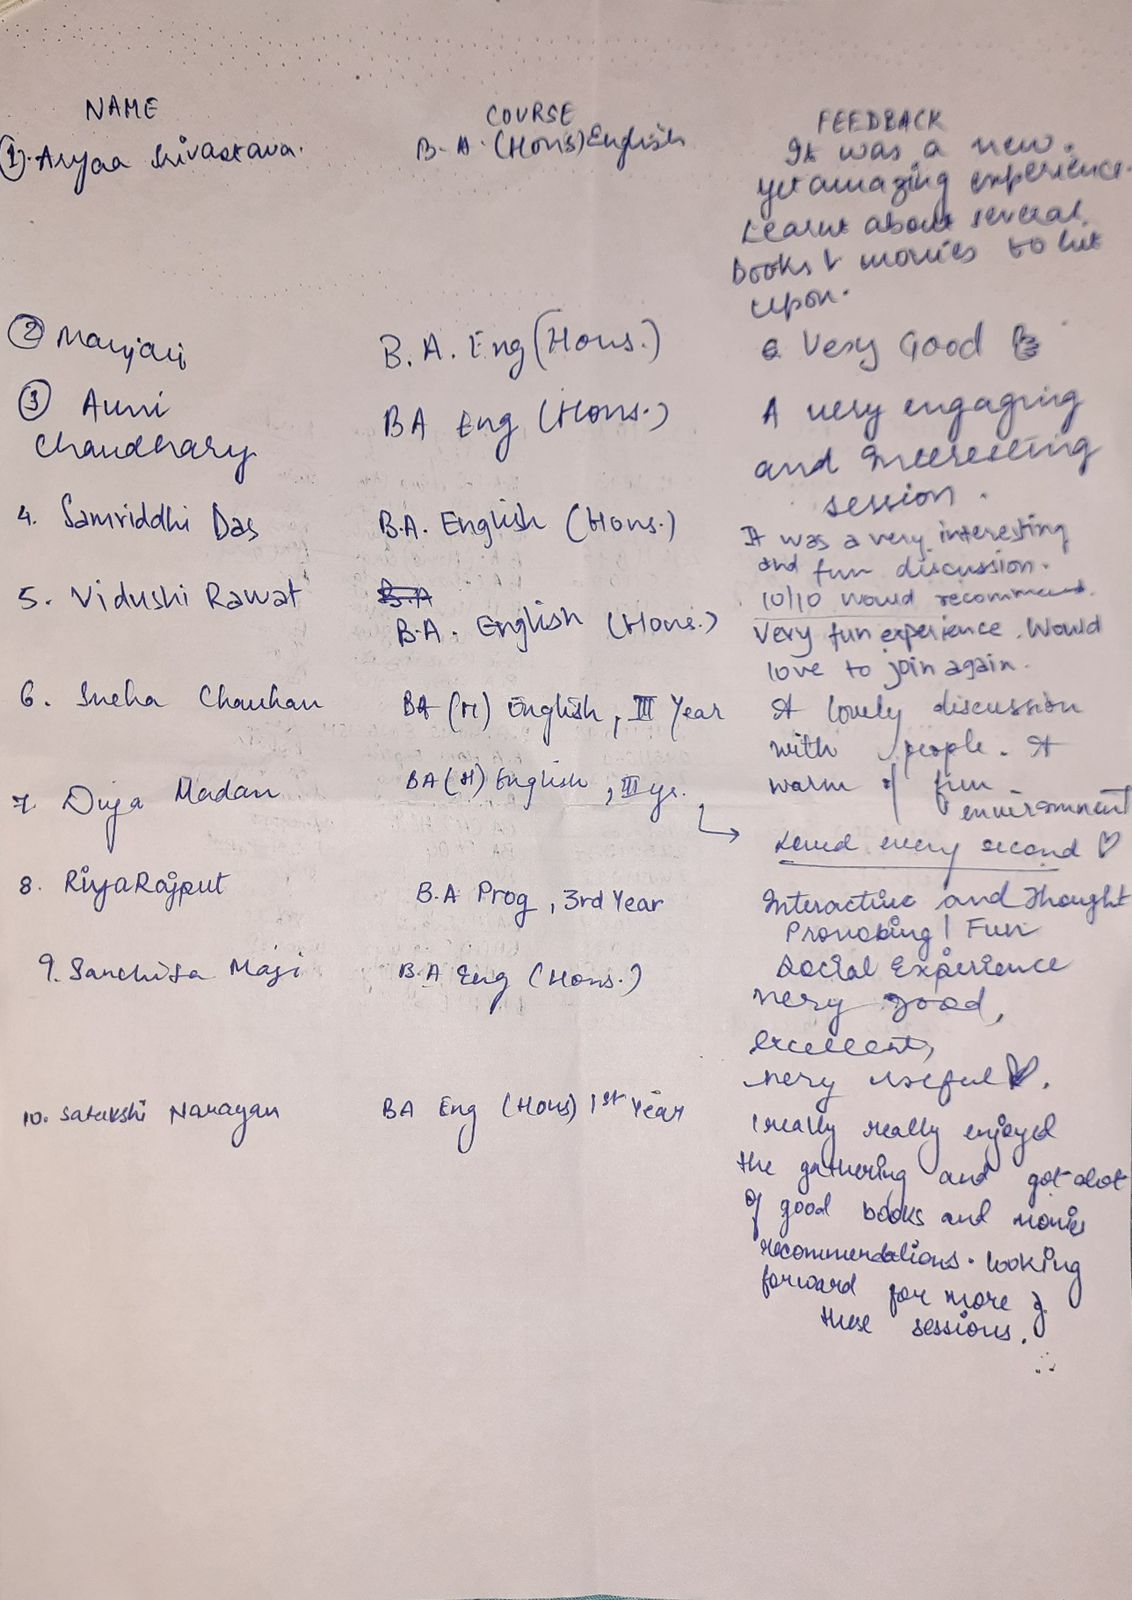 NAME COURSE FEEDBACK
1). Aryaa Srivastava. B.A. (Hons) English It was a new.
yet amazing experience.
Learnt about several
books & movies to hit
upon.
2 Manjari B.A. Eng (Hons.) Very Good
3 Avni BA Eng (Hons.) A very engaging
Chaudhary and Interesting
session.
4. Samriddhi Das B.A. English (Hons.) It was a very interesting
and fun discussion.
10/10 would recommend.
5. Vidushi Rawat B.A
B.A. English (Hons.) Very fun experience. Would
love to join again.
6. Sneha Chauhan BA (H) English, III Year A lovely discussion
with people. A
warm & fun
environment
7. Divja Madan BA (H) English, III yr.
Loved every second ♡
8. Riya Rajput B.A Prog, 3rd Year Interactive and Thought
Provobing! Fun
Social Experience
9. Sanchita Maji B.A Eng (Hons.) very good,
excellent,
very useful ♡.
10. Satakshi Narayan BA Eng (Hons) 1st Year I really really enjoyed
the gathering and got alot
of good books and movie
recommendations. looking
forward for more of
these sessions.